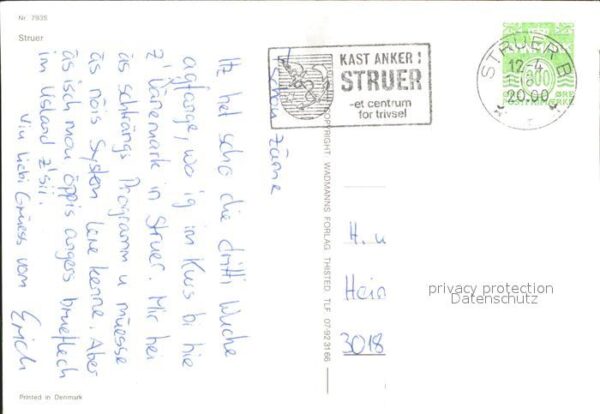 Nr. 7835
Struer
Zäme
Itz het scho die dritti Wuche
agfange, wo ig im Kurs bi hie
z' Dänemark in Struer. Mir hei
äs schträngs Programm u müesse
äs nöis System lere kenne. Aber
äs isch mou öppis angers brueflech
im Usland z'sii.
Viu liebi Grüess vom
Erich
Printed in Denmark
COPYRIGHT WADMANNS FORLAG THISTED TLF 07-92 31 66
KAST ANKER I
STRUER
-et centrum
for trivsel
STRUER B
12-4
20.00
H. u
Hein
3018
privacy protection
Datenschutz